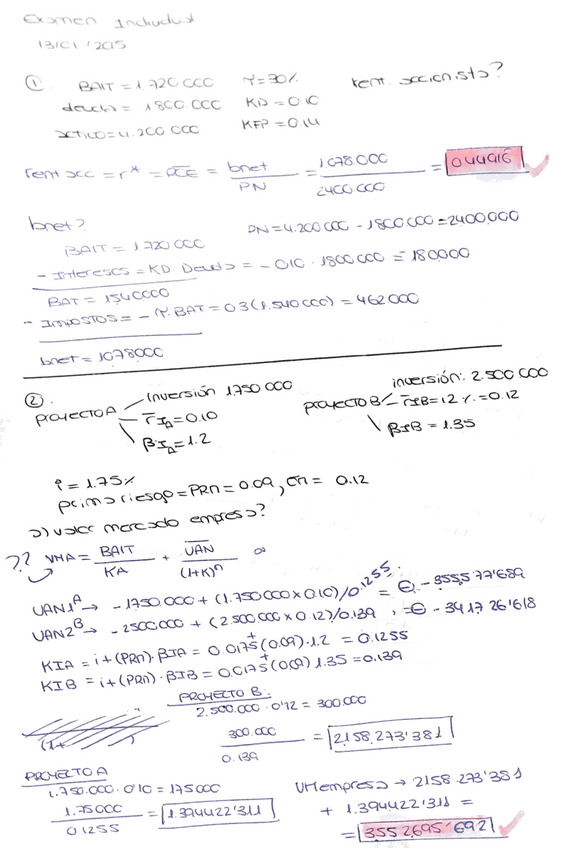 Examen Individual
13/01/2015
① BAIT = 1.720 000 T = 30% rent. accionista?
deuda = 1800 000 KD = 0.10
activo = 4.200 000 KFP = 0.14
rent acc = r* = RCE = bnet/PN = 1078 000/2400 000 = 0'44916
bnet? PN = 4.200 000 - 1800 000 = 2400.000
BAIT = 1.720 000
- Intereses = KD Deuda = - 0.10 · 1800 000 = 180.000
BAT = 1540000
- Impostos = - T. BAT = 0.3 (1.540 000) = 462 000
bnet = 1078000
② Inversión 1.750 000 inversión: 2.500 000
PROYECTO A r̄IA = 0.10 PROYECTO B r̄IB = 12% = 0.12
βIA = 1.2 βIB = 1.35
i = 1.75%
prima riesgo = PRM = 0.09, σM = 0.12
a) valor mercado empresa?
?? VMA = BAIT/KA + VAN/(1+K)^n ∞
VAN1^A → - 1750 000 + (1.750 000 x 0.10)/0.1255 = ⊖ - 355577'689
VAN2^B → - 2500000 + (2500 000 x 0.12)/0.139 = ⊖ - 341726'618
KIA = i + (PRM) · βIA = 0.0175 + (0.09) · 1.2 = 0.1255
KIB = i + (PRM) · βIB = 0.0175 + (0.09) 1.35 = 0.139
PROYECTO B:
2.500.000 · 0'12 = 300 000
300.000/0.139 = 2158.273'381
PROYECTO A
1.750.000 · 0'10 = 175000
1.75000/0.1255 = 1.394422'311
VMempresa → 2158 273'381
+ 1.394422'311 =
= 3552695'692